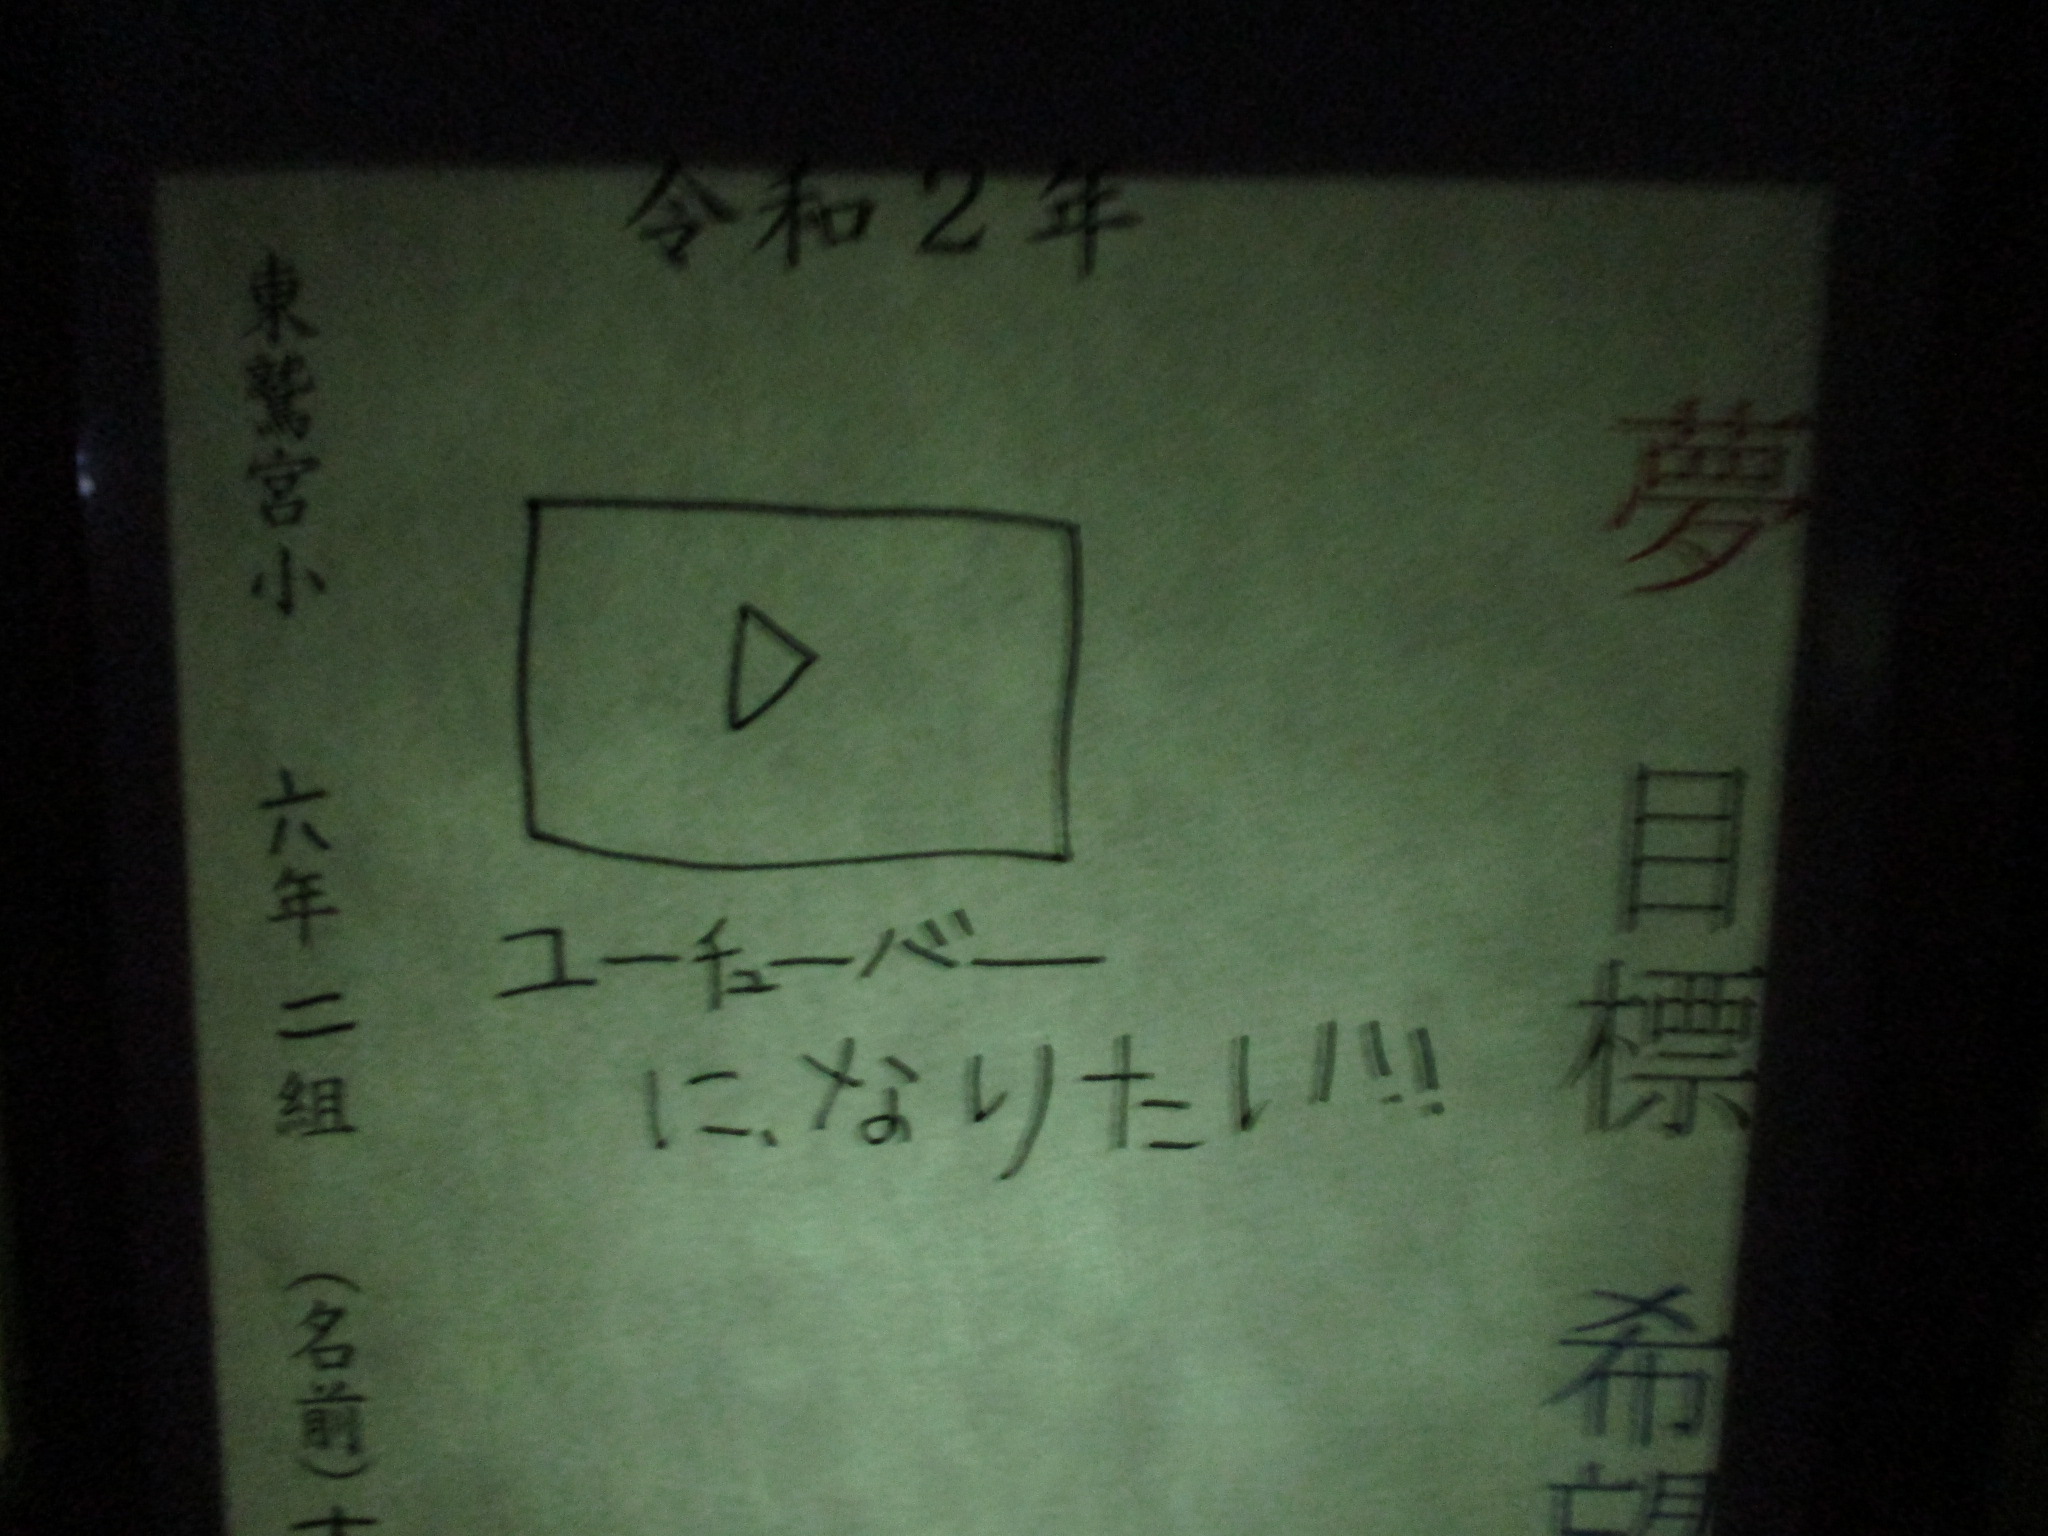 令和2年
夢
目標
希望
ユーチューバー
になりたい!!!
東鷲宮小 六年二組 (名前)